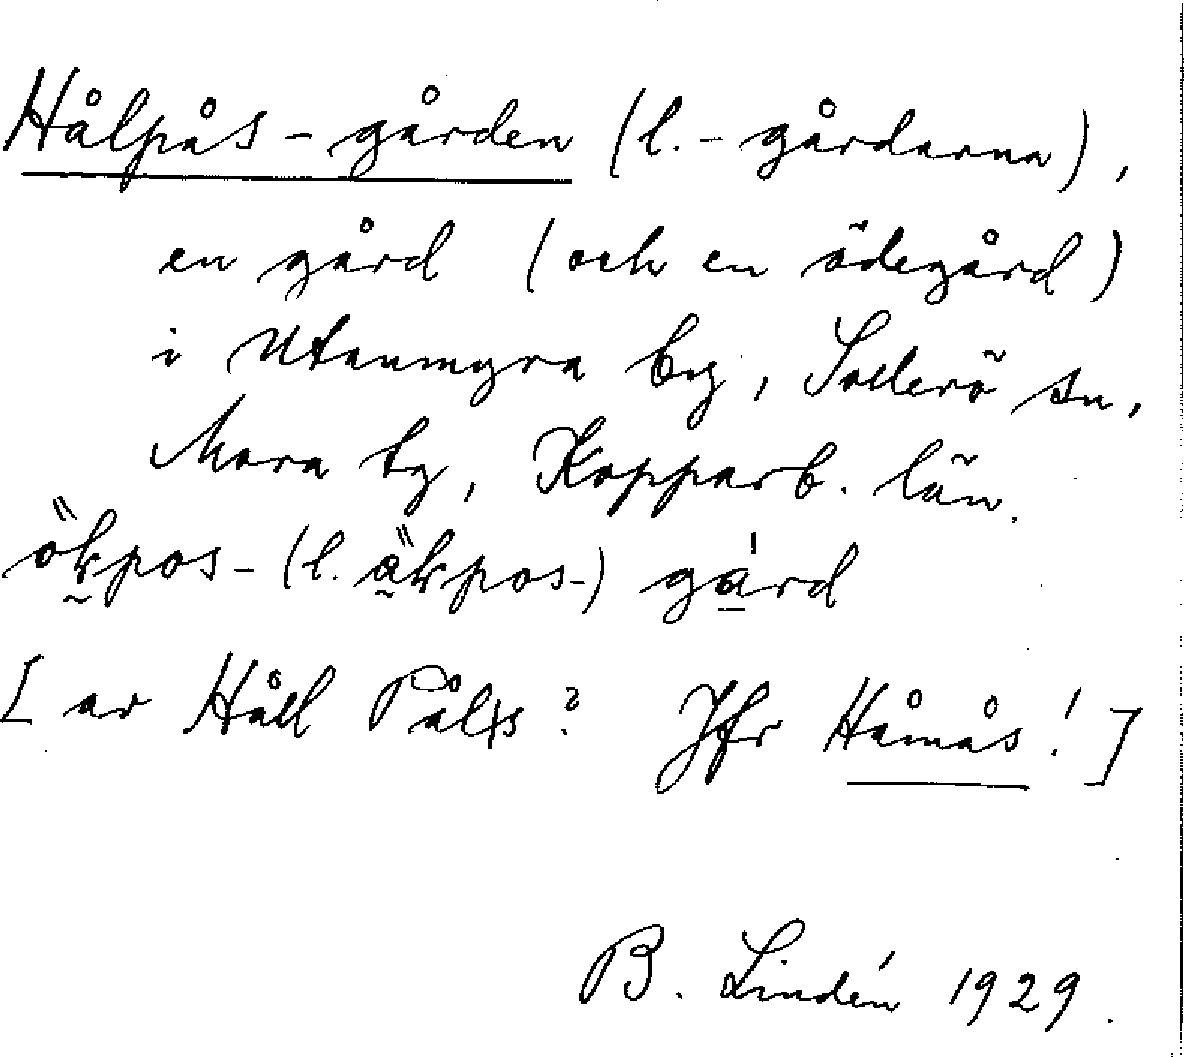 Hålpås-gården (l. -gårdarna),
en gård (och en ödegård)
i Utanmyra by, Sollerö sn,
Mora tg, Kopparb. län.
ö̋k̰pos- (l. a̰̋kpos-) gá̱rd
[av Håll Påls? Jfr Håmås!]
B. Lindén 1929.